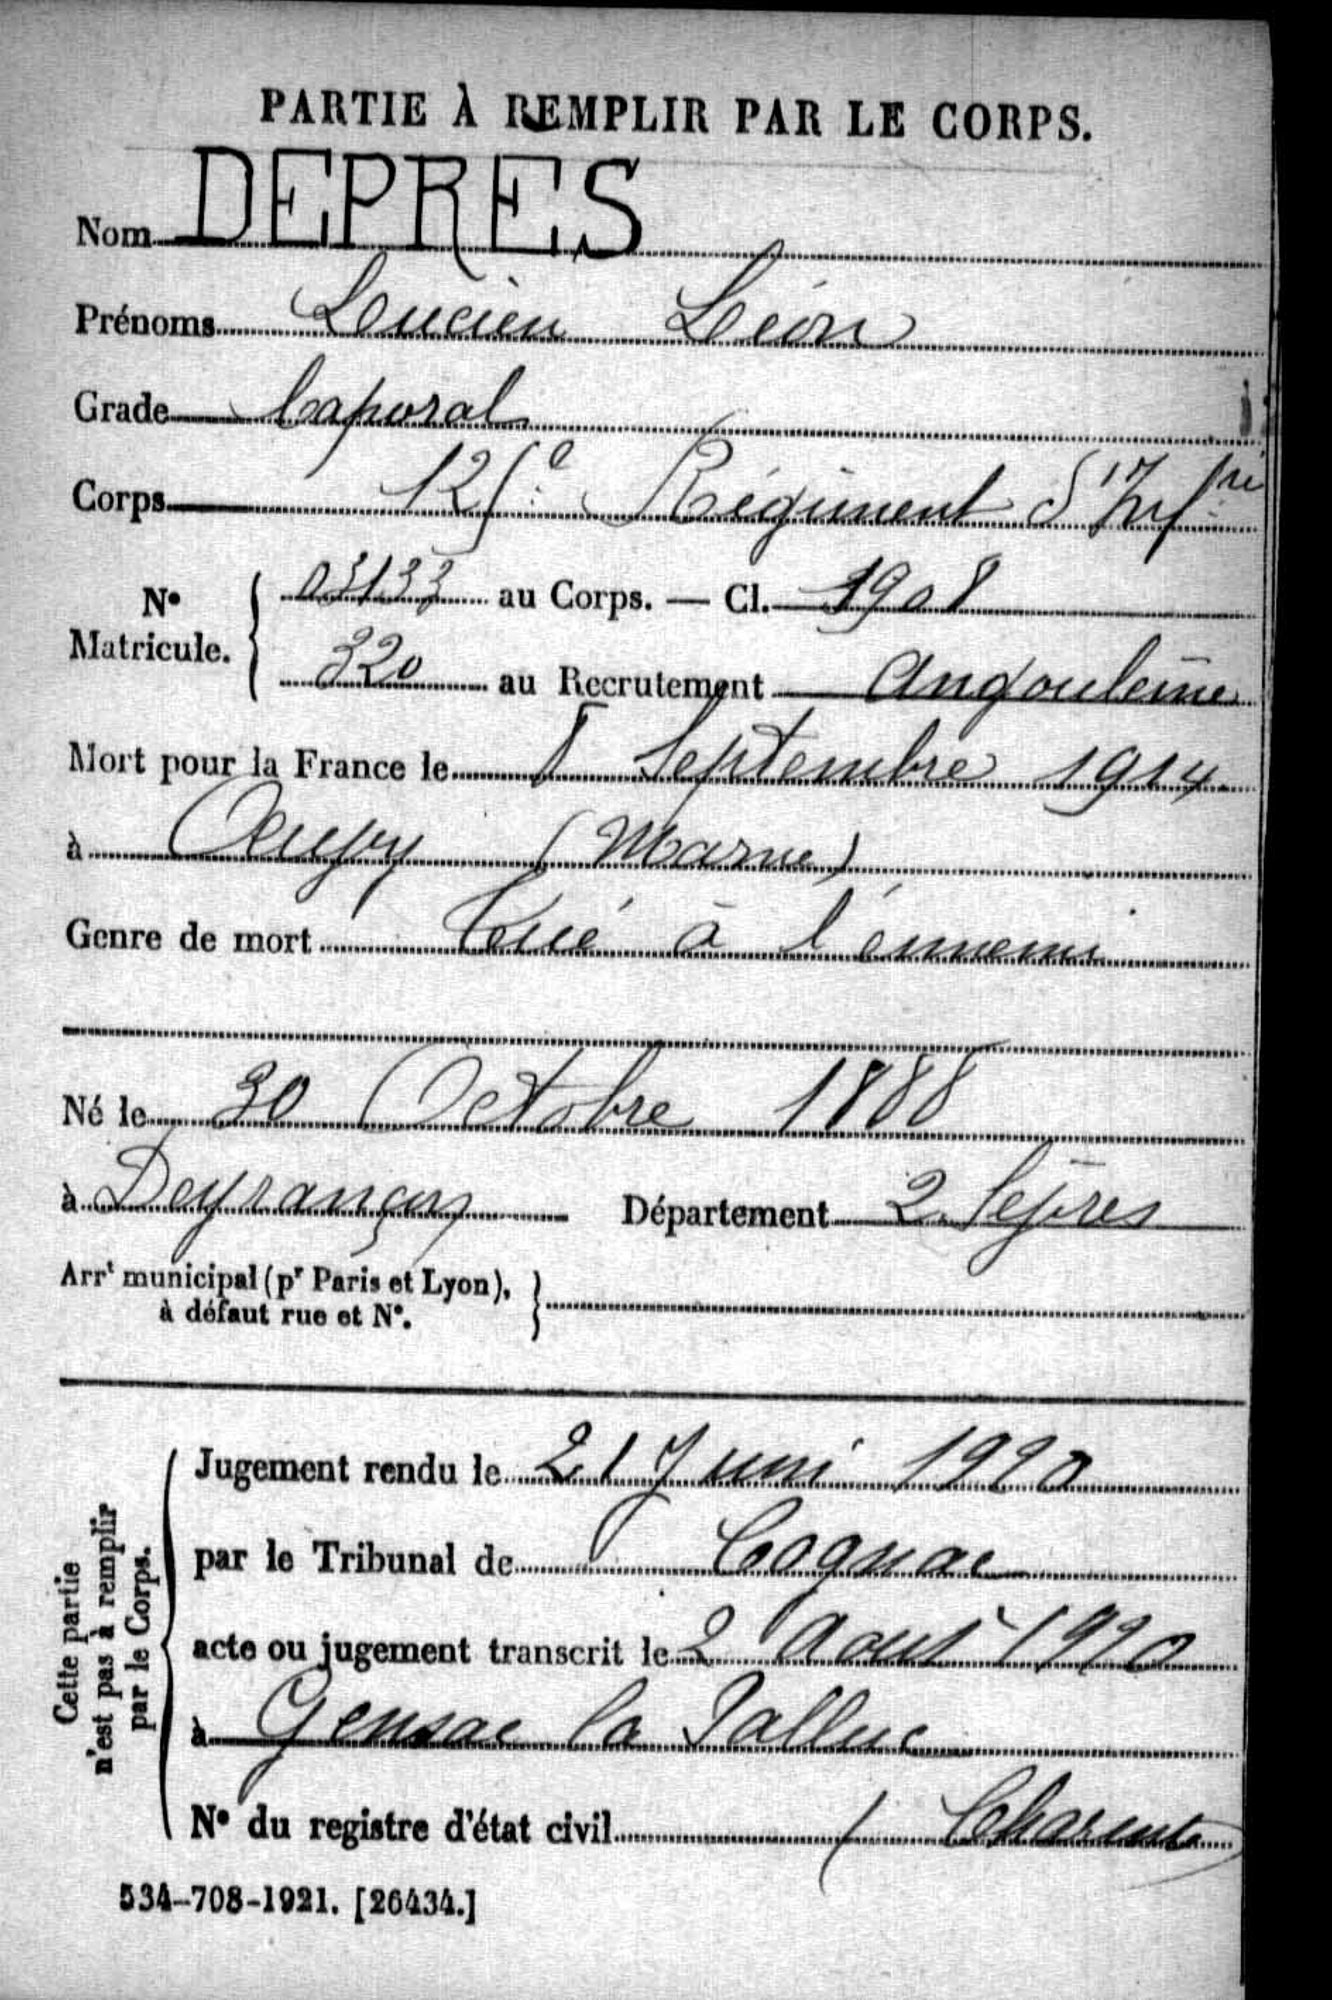 PARTIE À REMPLIR PAR LE CORPS.
Nom DEPRES
Prénoms Lucien Léon
Grade Caporal
Corps 125e Régiment d'Infrie
No Matricule. { 03133 au Corps. — Cl. 1908
320 au Recrutement Angoulême
Mort pour la France le 8 Septembre 1914
à (Marne)
Genre de mort Tué à l'ennemi
Né le 30 Octobre 1888
à Deyrançon Département 2 Sèvres
Arrt municipal (pr Paris et Lyon),
à défaut rue et No. }
Cette partie
n'est pas à remplir
par le Corps.
Jugement rendu le 21 Juin 1920
par le Tribunal de Cognac
acte ou jugement transcrit le 2 Août 1920
à Gensac la Pallue
No du registre d'état civil (Charente)
534-708-1921. [26434.]